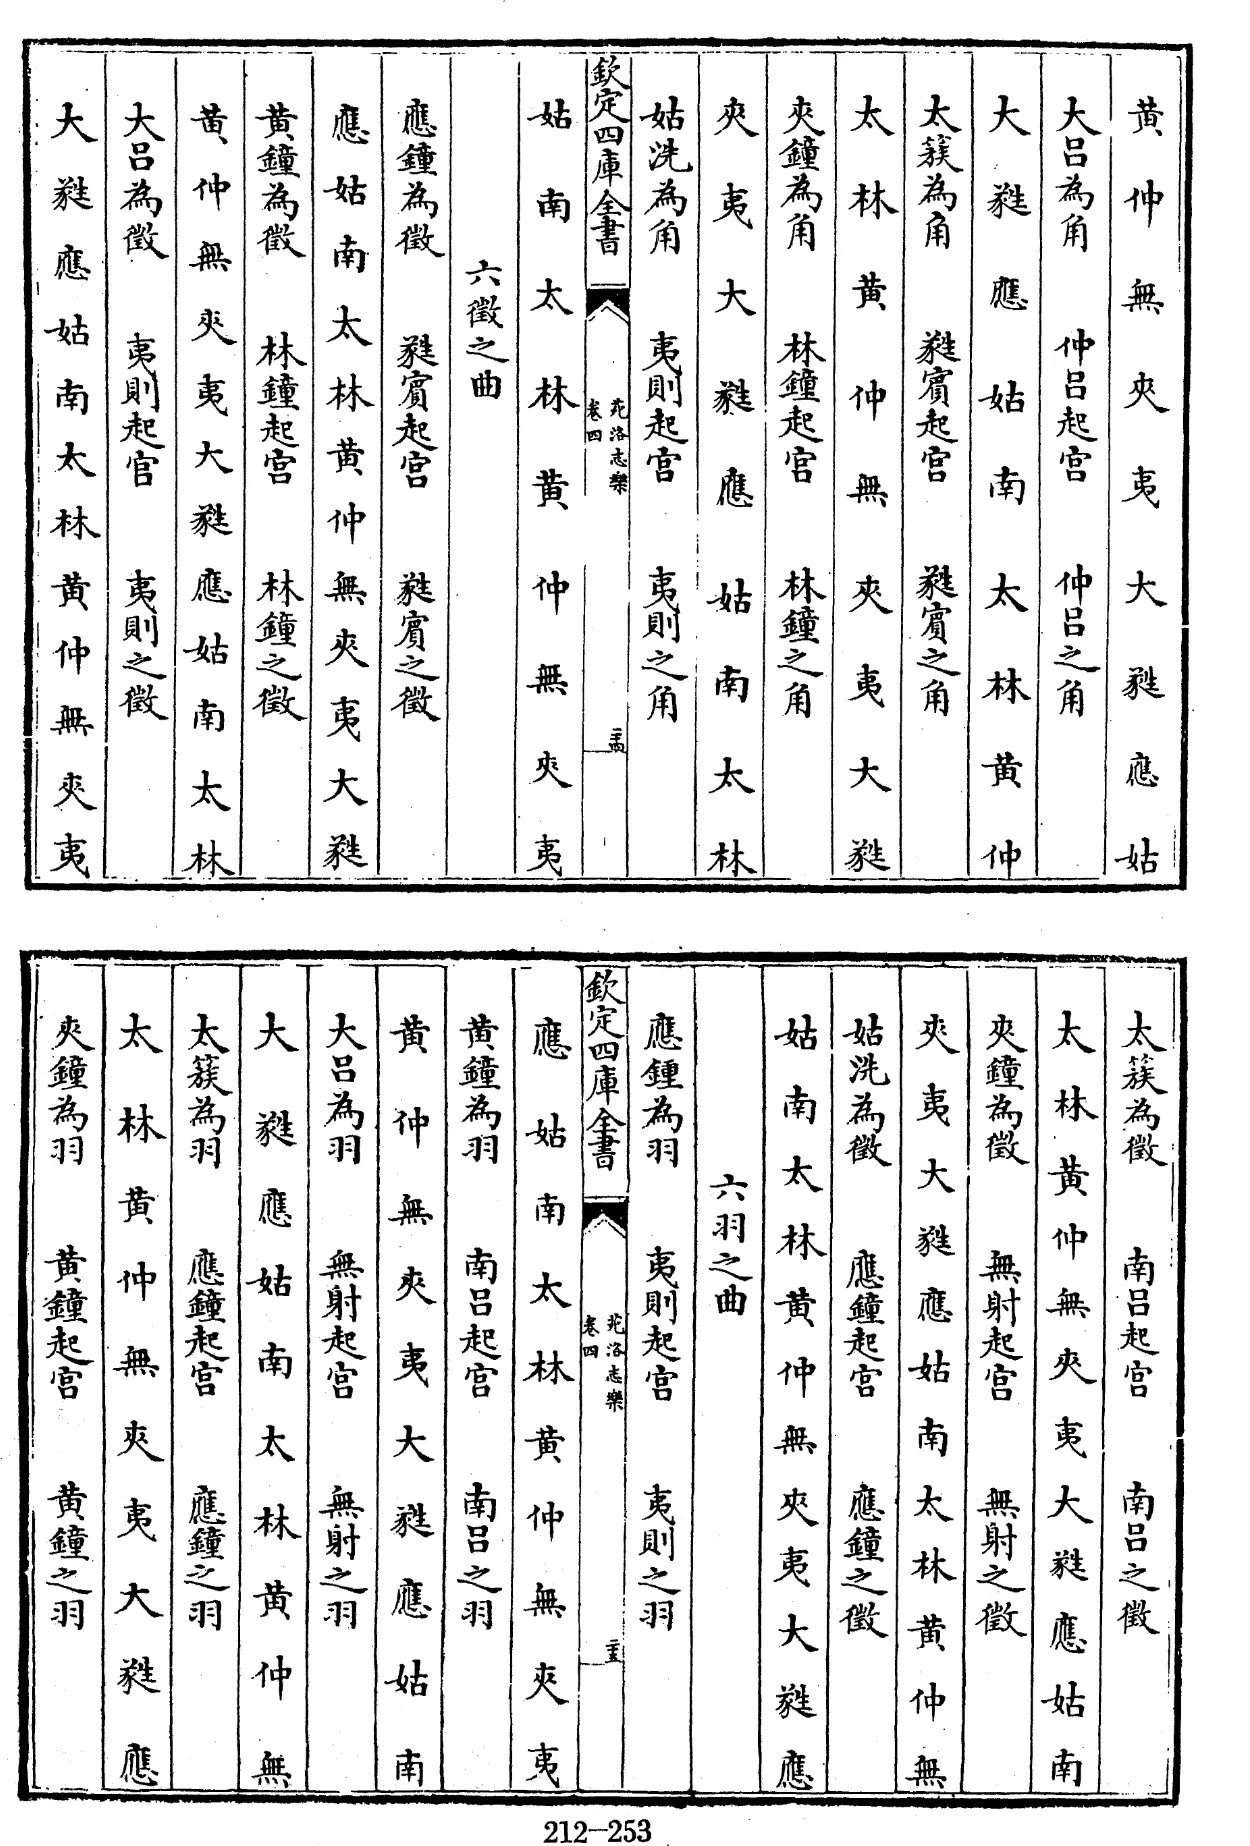 黄仲無夾夷大蕤應姑
大呂為角　仲呂起宫　仲呂之角
大蕤應姑南太林黄仲
太簇為角　蕤賓起宫　蕤賓之角
太林黄仲無夾夷大蕤
夾鐘為角　林鐘起宫　林鐘之角
夾夷大蕤應姑南太林
姑洗為角　夷則起宫　夷則之角
欽定四庫全書
苑洛志樂
卷四
姑南太林黄仲無夾夷
六徵之曲
應鐘為徵　蕤賓起宫　蕤賓之徵
應姑南太林黄仲無夾夷大蕤
黄鐘為徵　林鐘起宫　林鐘之徵
黄仲無夾夷大蕤應姑南太林
大呂為徵　夷則起官　夷則之徵
大蕤應姑南太林黄仲無夾夷
太簇為徵　南呂起宫　南呂之徵
太林黄仲無夾夷大蕤應姑南
夾鐘為徵　無射起宫　無射之徵
夾夷大蕤應姑南太林黄仲無
姑洗為徵　應鐘起宫　應鐘之徵
姑南太林黄仲無夾夷大蕤應
六羽之曲
應鍾為羽　夷則起宫　夷則之羽
欽定四庫全書
苑洛志樂
卷四
應姑南太林黄仲無夾夷
黄鐘為羽　南呂起宫　南呂之羽
黄仲無夾夷大蕤應姑南
大呂為羽　無射起宫　無射之羽
大蕤應姑南太林黄仲無
太簇為羽　應鐘起宫　應鐘之羽
太林黄仲無夾夷大蕤應
夾鐘為羽　黄鐘起宫　黄鐘之羽
212-253